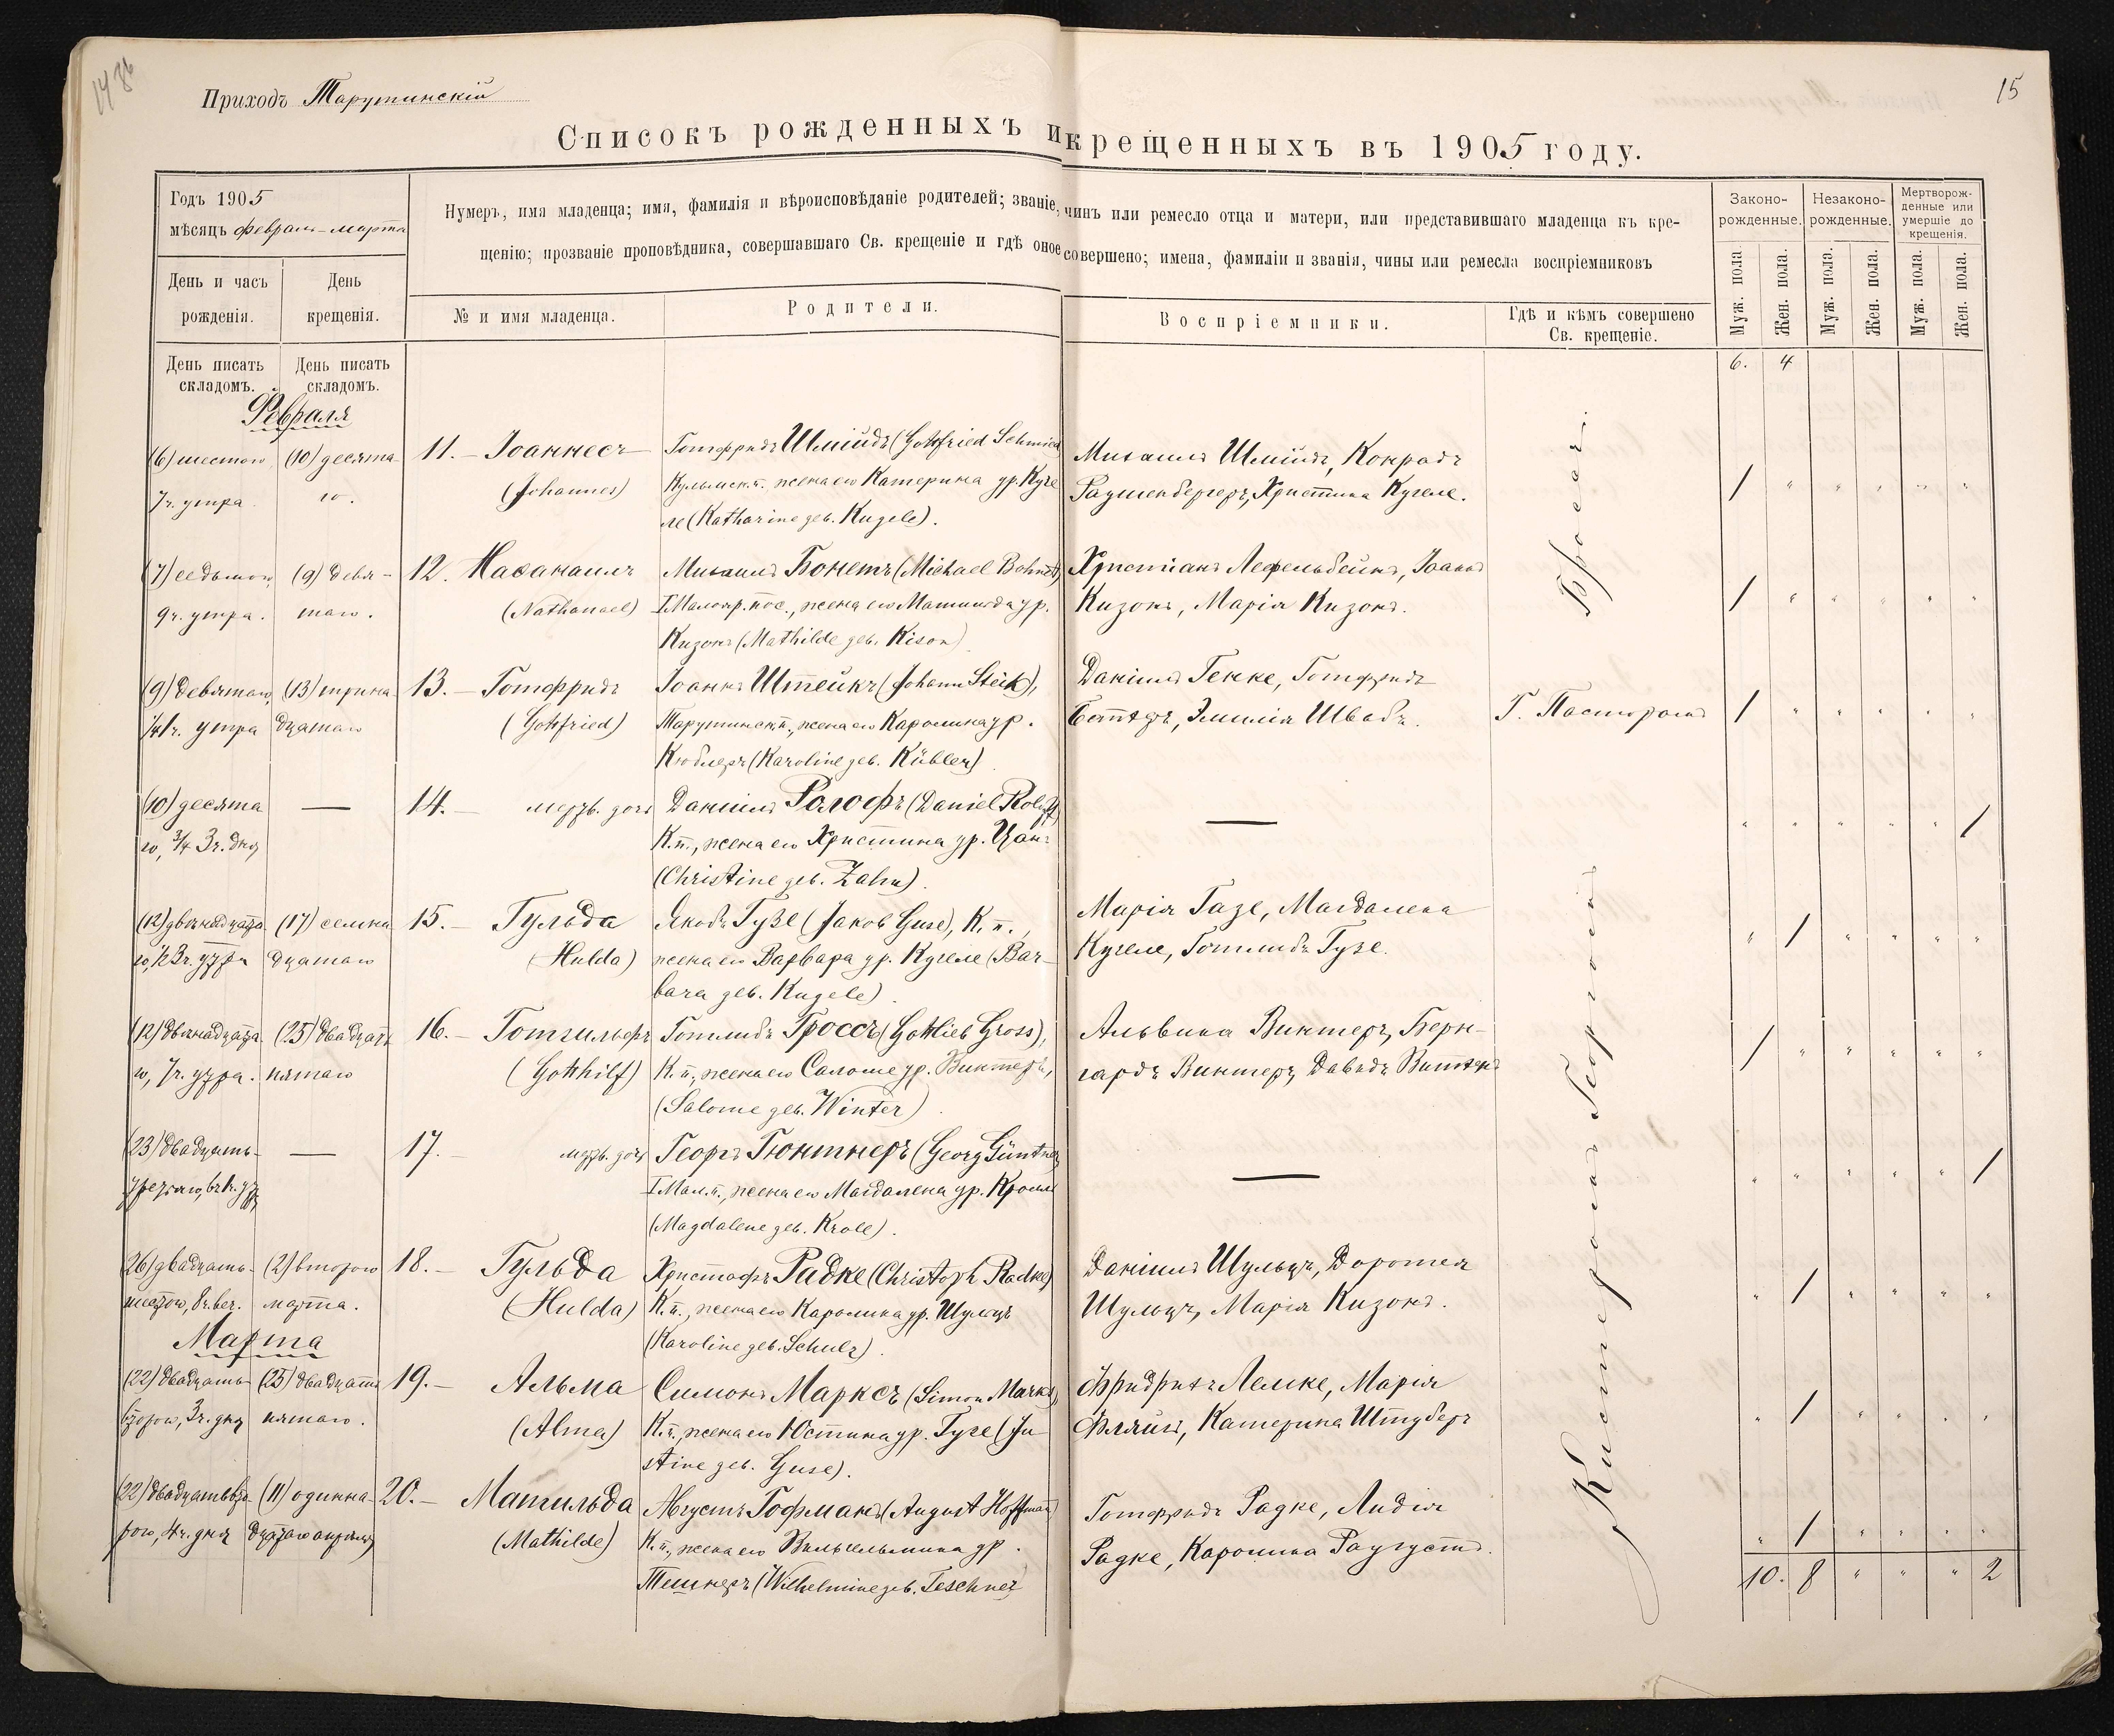 15
Приходъ Тарутинскій
Списокъ рожденныхъ и крещенныхъ въ 1905 году.
Годъ 1905
мѣсяцъ февраль-марта
День и часъ рожденія.
День крещенія.
Нумеръ, имя младенца; имя, фамилія и вѣроисповѣданіе родителей; званіе, чинъ или ремесло отца и матери, или представившаго младенца къ кре-
щенію; прозваніе проповѣдника, совершавшаго Св. крещеніе и гдѣ оное совершено; имена, фамиліи и званія, чины или ремесла воспріемниковъ
№ и имя младенца.
Родители.
Воспріемники.
Гдѣ и кѣмъ совершено
Св. крещеніе.
Законо-
рожденные.
Незаконо-
рожденные.
Мертворож-
денные или
умершіе до
крещенія.
Муж. пола
Жен. пола.
Муж. пола.
Жен. пола.
Муж. пола.
Жен. пола.
День писать
складомъ.
День писать
складомъ.
6. 4
Февраля
(6) шестого (10) десята- 11. - Іоаннесъ Готфридъ Шмидъ (Gottfried Schmied Михаилъ Шмидъ, Конрадъ
7 ч. утра го. (Johannes) Кульмск.п. жена его Катерина ур. Куге Раушенбергеръ, Христина Кугеле. /
ле (Katharine geb. Kugele).
(7) седьмого, (9) девя- 12. Наѳанаилъ Михаилъ Бонетъ (Michael Bohnet) Христіанъ Лефельбейнъ, Іоаннъ
9 ч. утра. таго. (Nathanael) І Малояр. пос., жена его Матильда ур. Кизонъ, Марія Кизонъ. /
Кизонъ (Mathilde geb. Kison)
(9) девятаго, (13) трина- 13. - Готфридъ Іоаннъ Штейкъ (Johann Steik), Даніилъ Генке, Готфридъ
утра дцатаго (Gottfried) Тарутинск.п., жена его Каролина ур. Эмилія Швабъ. Г. Пасторомъ /
Кюблеръ (Karoline geb. Kübler)
(10) десята — 14. - мертв. дочь Даніилъ Ролофъ (Daniel Roloff) —
го, 3/4 3 ч. дня К.п., жена его Христина ур. Цанъ /
(Christine geb. Zahn).
(12) двѣнадцата (17) семна 15. - Гульда Якобъ Гузе (Jakob Guse), К. п., Марія Газе, Магдалена
го, 1/2 3 ч. утра дцатаго (Hulda) жена его Варвара ур. Кугеле (Bar- Кугеле, Готлибъ Гузе. /
bara geb. Kugele).
(12) двѣнадцата (25) двадцать 16. - Готгильфъ Готлибъ Гроссъ (Gottlieb Gross), Альвина Винтеръ, Берн-
го, 7 ч. утра. пятаго (Gotthilf) К. п., жена его Саломе ур. Винтеръ, гардъ Винтеръ, Давидъ /
(Salome geb. Winter).
(23) двадцать- — 17. - мертв. дочь Георгъ Гюнтнеръ (Georg Güntner —
третьяго, утр І Мал.п., жена его Магдалена ур. Кролль /
(Magdalene geb. Kroll).
26) двадцать- (2) второго 18. - Гульда Христофъ Радке (Christoph Radke) Даніилъ Шульцъ, Доротея
шестого, 8 ч. веч. марта. (Hulda) К.п., жена его Каролина ур. Шульцъ Шульцъ, Марія Кизонъ. /
(Karoline geb. Schulz).
Марта
(22) двадцать- (25) двадцать 19. - Альма Симонъ Марксъ (Simon Marks) Фридрихъ Лемке, Марія
второго, 3 ч. дня пятаго. (Alma) К.п., жена его Юстина ур. Гузе (Ju- Катерина Штуберъ /
stine geb. Guse).
(22) двадцатьвто- (11) одинна- 20. - Матильда Августъ Гофманъ (August Hoffmann) Готфридъ Радке, Лидія
рого, 4 ч. дня дцатаго апрѣля (Mathilde) К.п., жена его Вильгельмина ур. Радке, Каролина Раугустъ. /
Тешнеръ (Wilhelmine geb. Teschner)
10. 8 " " " 2